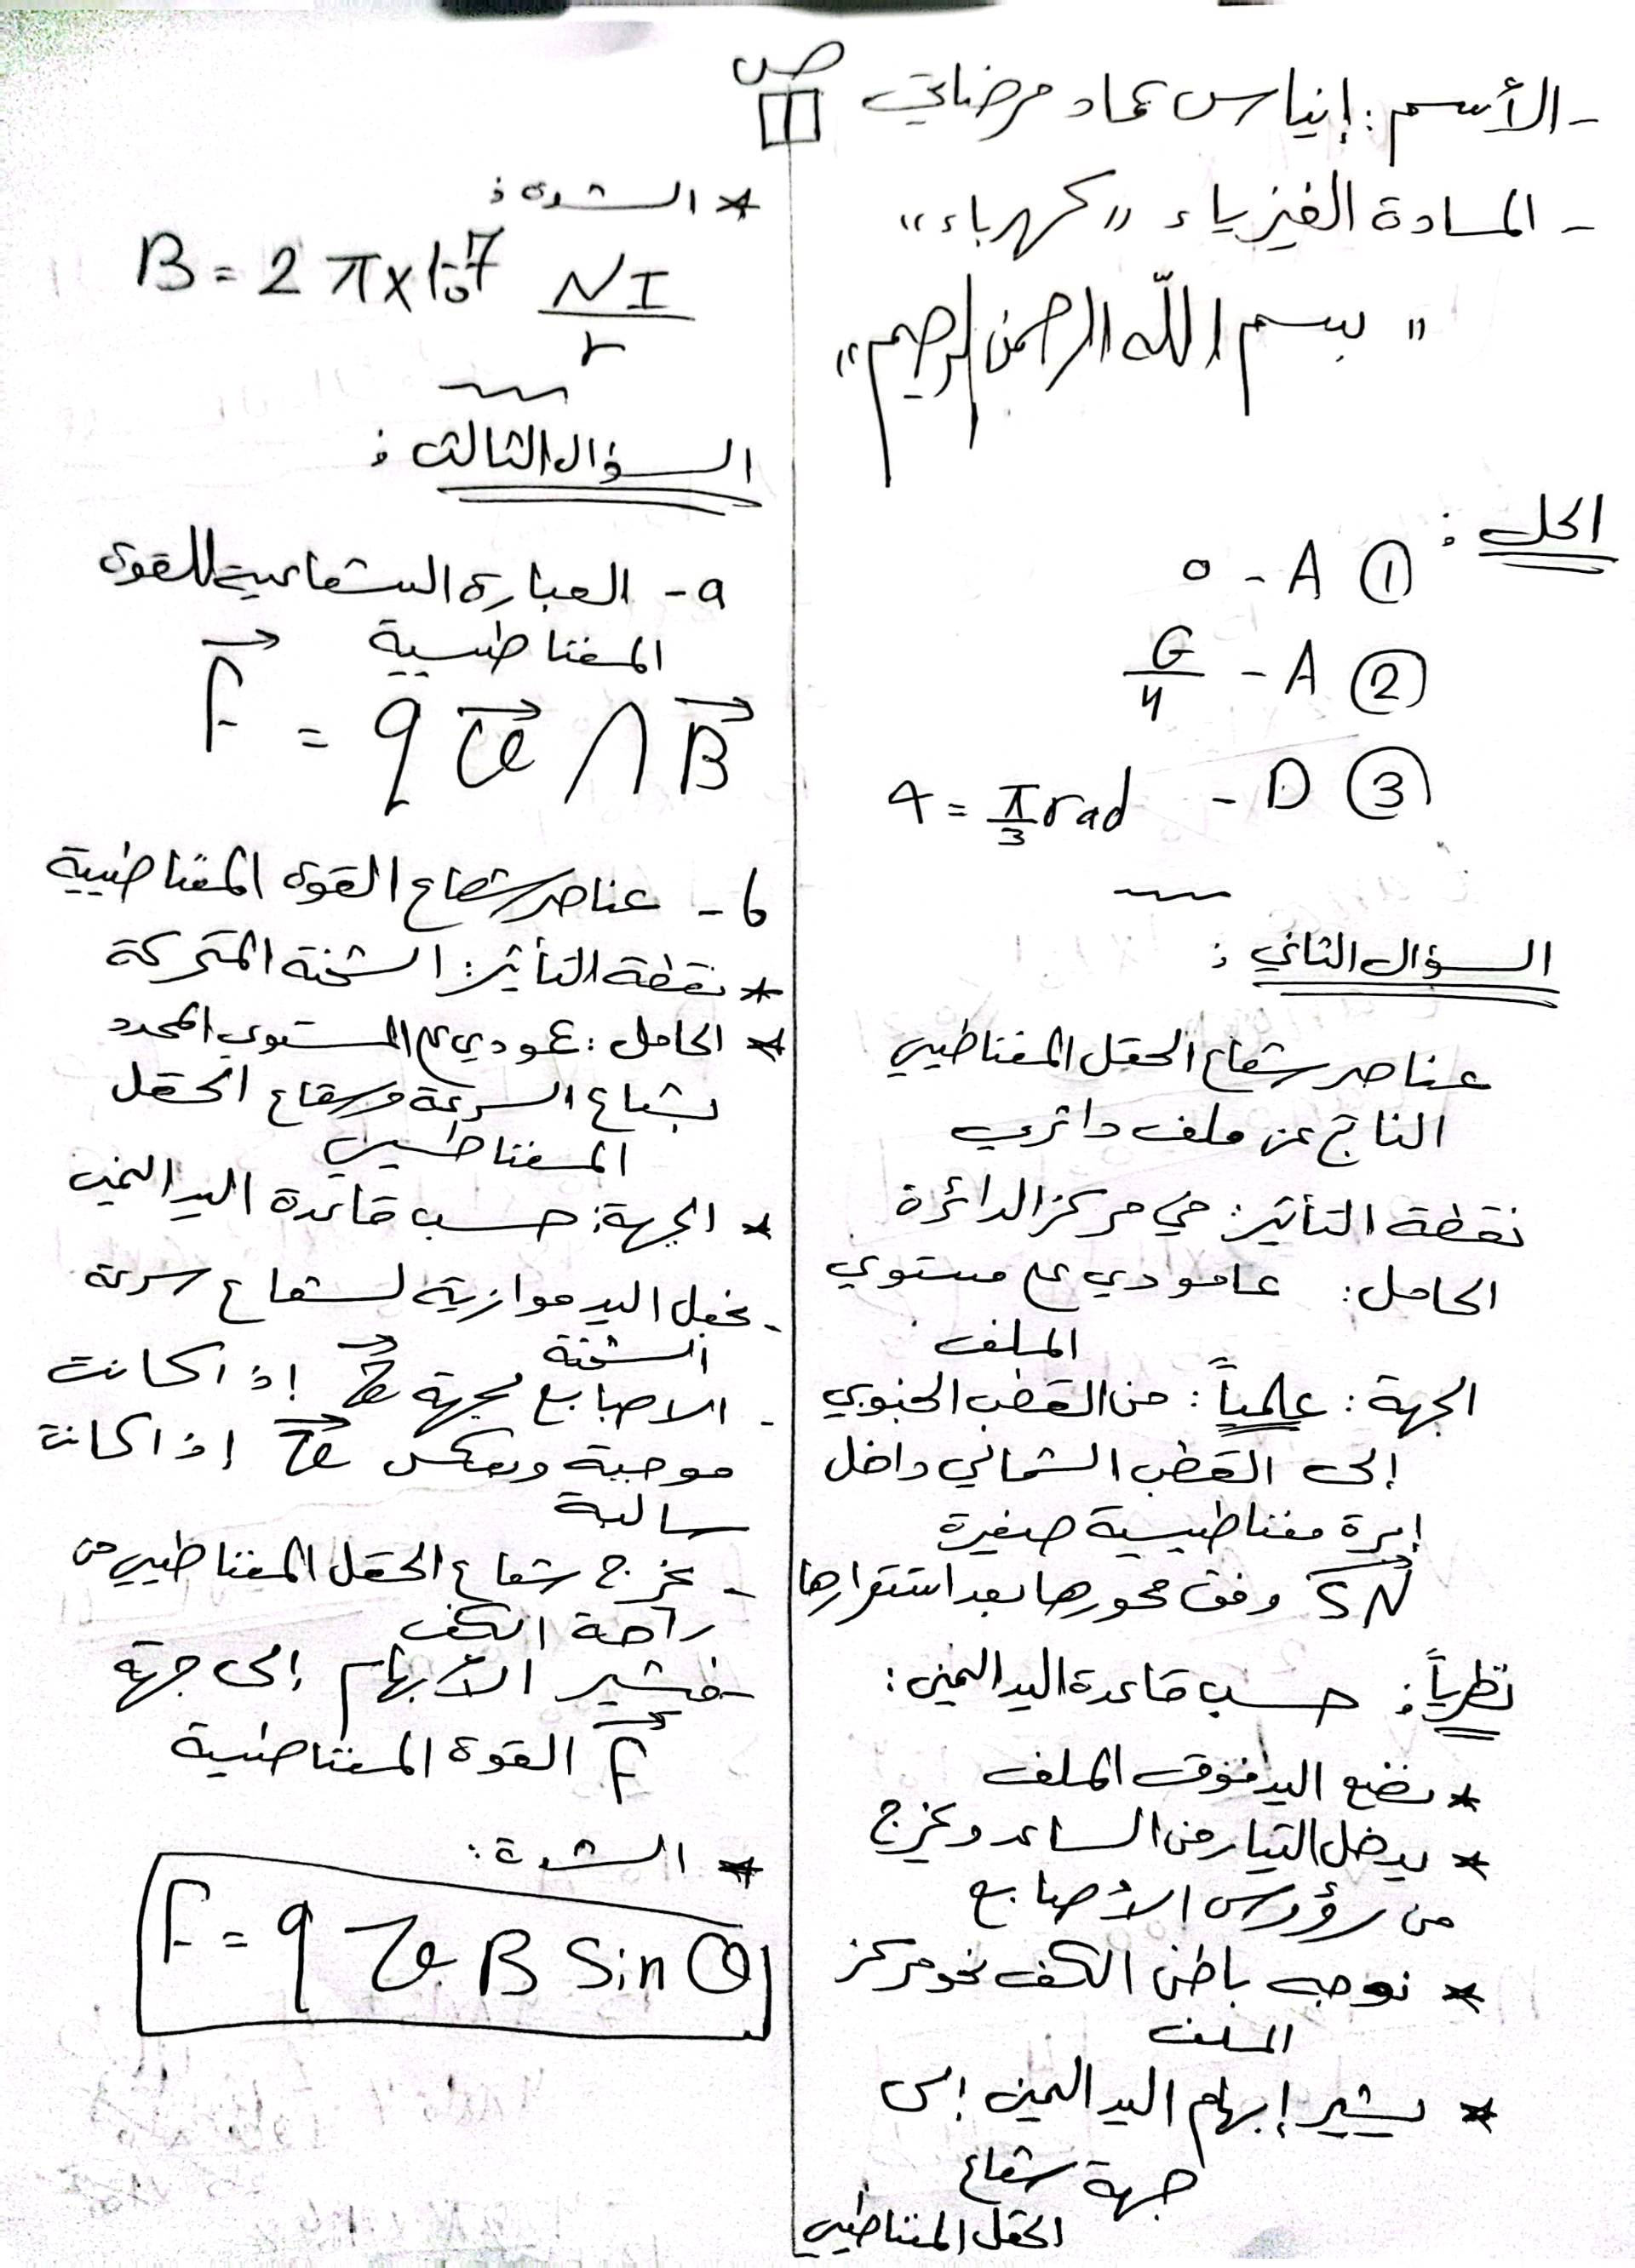 - الأسم: إنياس عماد مرضاتي
- المادة الفيزياء "كهرباء"
" بسم الله الرحمن الرحيم "
الحل :
① A - 0
② A - G/4
③ D - α = π/3 rad
السؤال الثاني :
عناصر شعاع الحقل المغناطيسي
الناتج عن ملف دائري
نقطة التأثير: في مركز الدائرة
الحامل: عامودي على مستوي
الملف
الجهة : علمياً : من القطب الجنوبي
إلى القطب الشمالي داخل
إبرة مغناطيسية صغيرة
SN وفق محورها بعد استقرارها
نظرياً : حسب قاعدة اليد اليمنى :
* نضع اليد فوق الملف
* يدخل التيار من الساعد ويخرج
من رؤوس الأصابع
* نوجه باطن الكف نحو مركز
الملف
* يشير إبهام اليد اليمنى إلى
جهة شعاع
الحقل المغناطيسي
ص 1
* الشدة :
B = 2 π x 10^-7 NI/r
السؤال الثالث :
a - العبارة الشعاعية للقوة
المغناطيسية
F = q v ∧ B
b - عناصر شعاع القوة المغناطيسية
* نقطة التأثير: الشحنة المتحركة
* الحامل : عمودي على المستوي المحدد
بشعاع السرعة وشعاع الحقل
المغناطيسي
* الجهة : حسب قاعدة اليد اليمنى
- نجعل اليد موازية لشعاع سرعة
الشحنة
- الاصابع بجهة v إذا كانت
موجبة وبعكس v إذا كانت
سالبة
- يخرج شعاع الحقل المغناطيسي من
راحة الكف
- فيشير الأبهام إلى جهة
F القوة المغناطيسية
* الشدة :
F = q v B sin θ